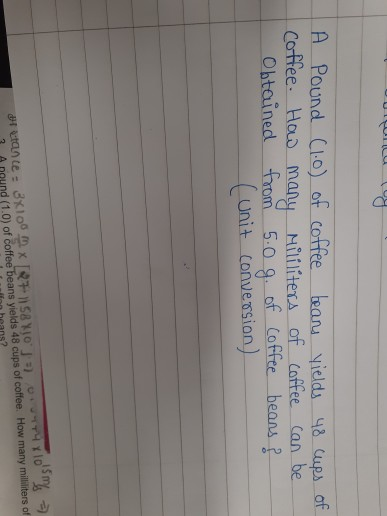 A Pound (1.0) of coffee beans yields 48 cups of
Coffee. How many Mililiters of coffee can be
Obtained from 5.0 g. of coffee beans?
(unit conversion)
distance = 3x10⁸ m/s x
A pound (1.0) of coffee beans yields 48 cups of coffee. How many milliliters of
beans?